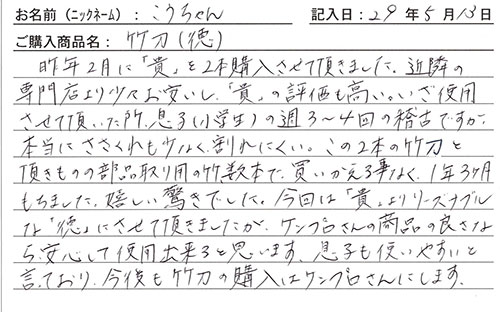 お名前（ニックネーム）：こうちゃん 記入日：29年5月13日
ご購入商品名：竹刀（徳）
昨年2月に「貴」を2本購入させて頂きました。近隣の
専門店より少々お安いし、「貴」の評価も高い。いざ使用
させて頂いた所、息子（小学生）の週3〜4回の稽古ですが、
本当にささくれも少なく、割れにくい。この2本の竹刀と
頂きものの部品取り用の竹数本で、買いかえる事なく、1年3ヶ月
もちました。嬉しい驚きでした。今回は「貴」よりリーズナブル
な「徳」にさせて頂きましたが、ケンプロさんの商品の良さな
ら安心して使用出来ると思います。息子も使いやすいと
言っており、今後も竹刀の購入はケンプロさんにします。